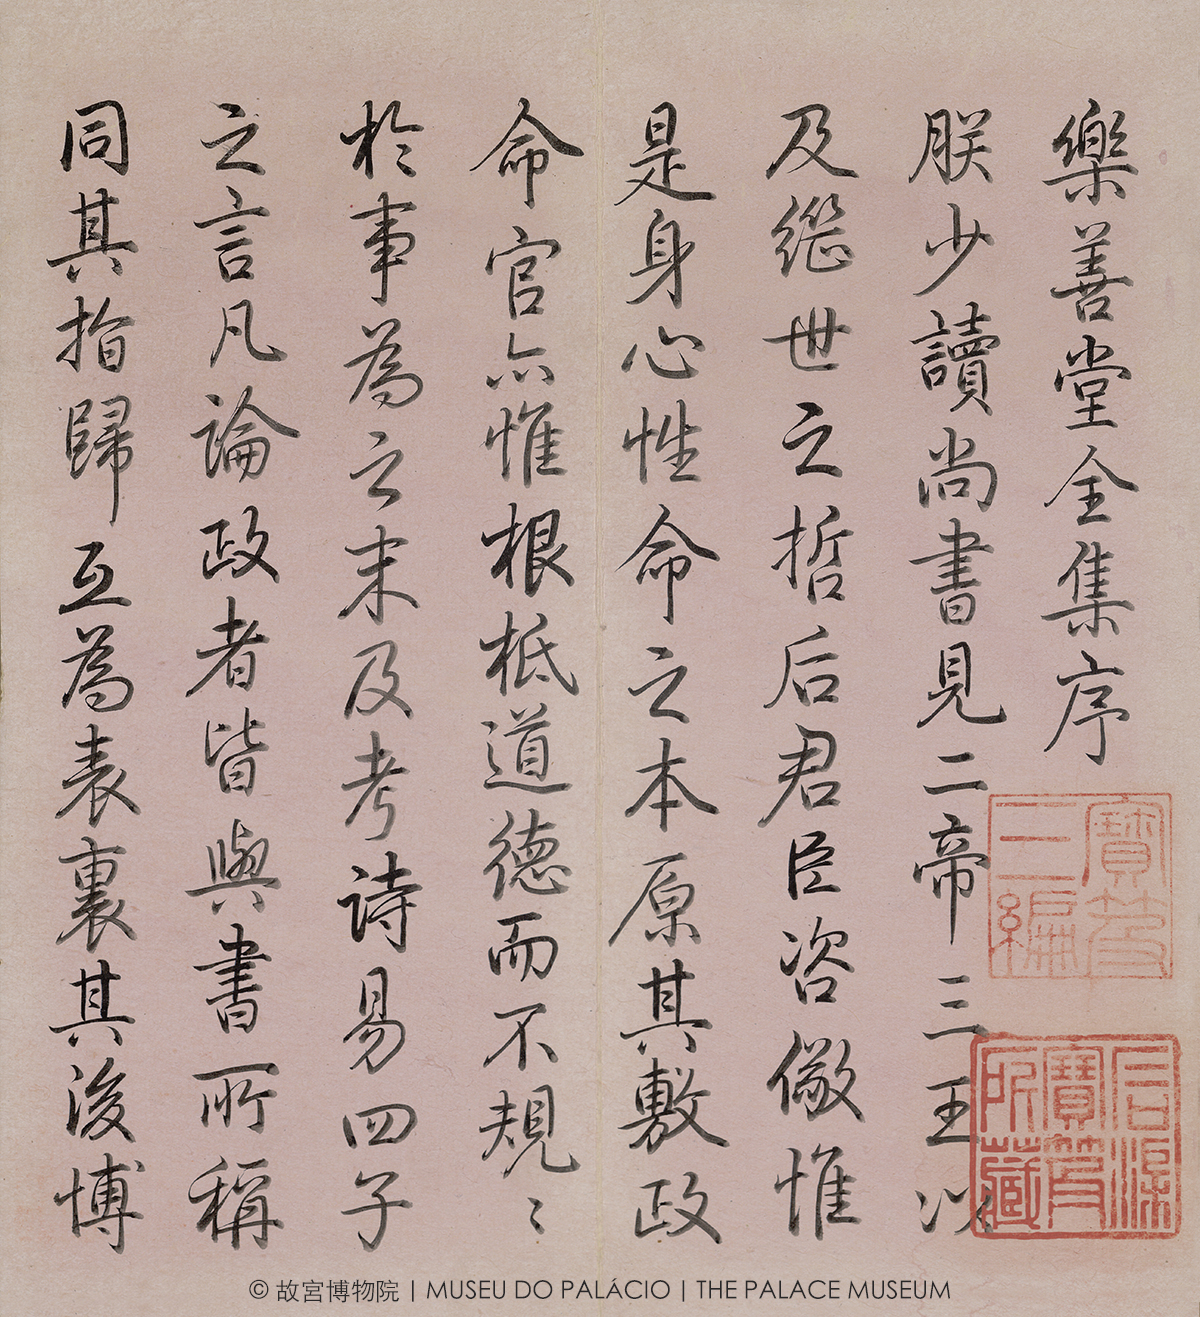 樂善堂全集序
朕少讀尚書見二帝三王以
及繼世之哲后君臣咨儆惟
是身心性命之本原其敷政
命官亦惟根柢道德而不規〻
於事為之末及考詩易四子
之言凡論政者皆與書所稱
同其指歸互為表裏其後博
寶笈
三編
石渠
寶笈
所藏
© 故宮博物院 | MUSEU DO PALÁCIO | THE PALACE MUSEUM